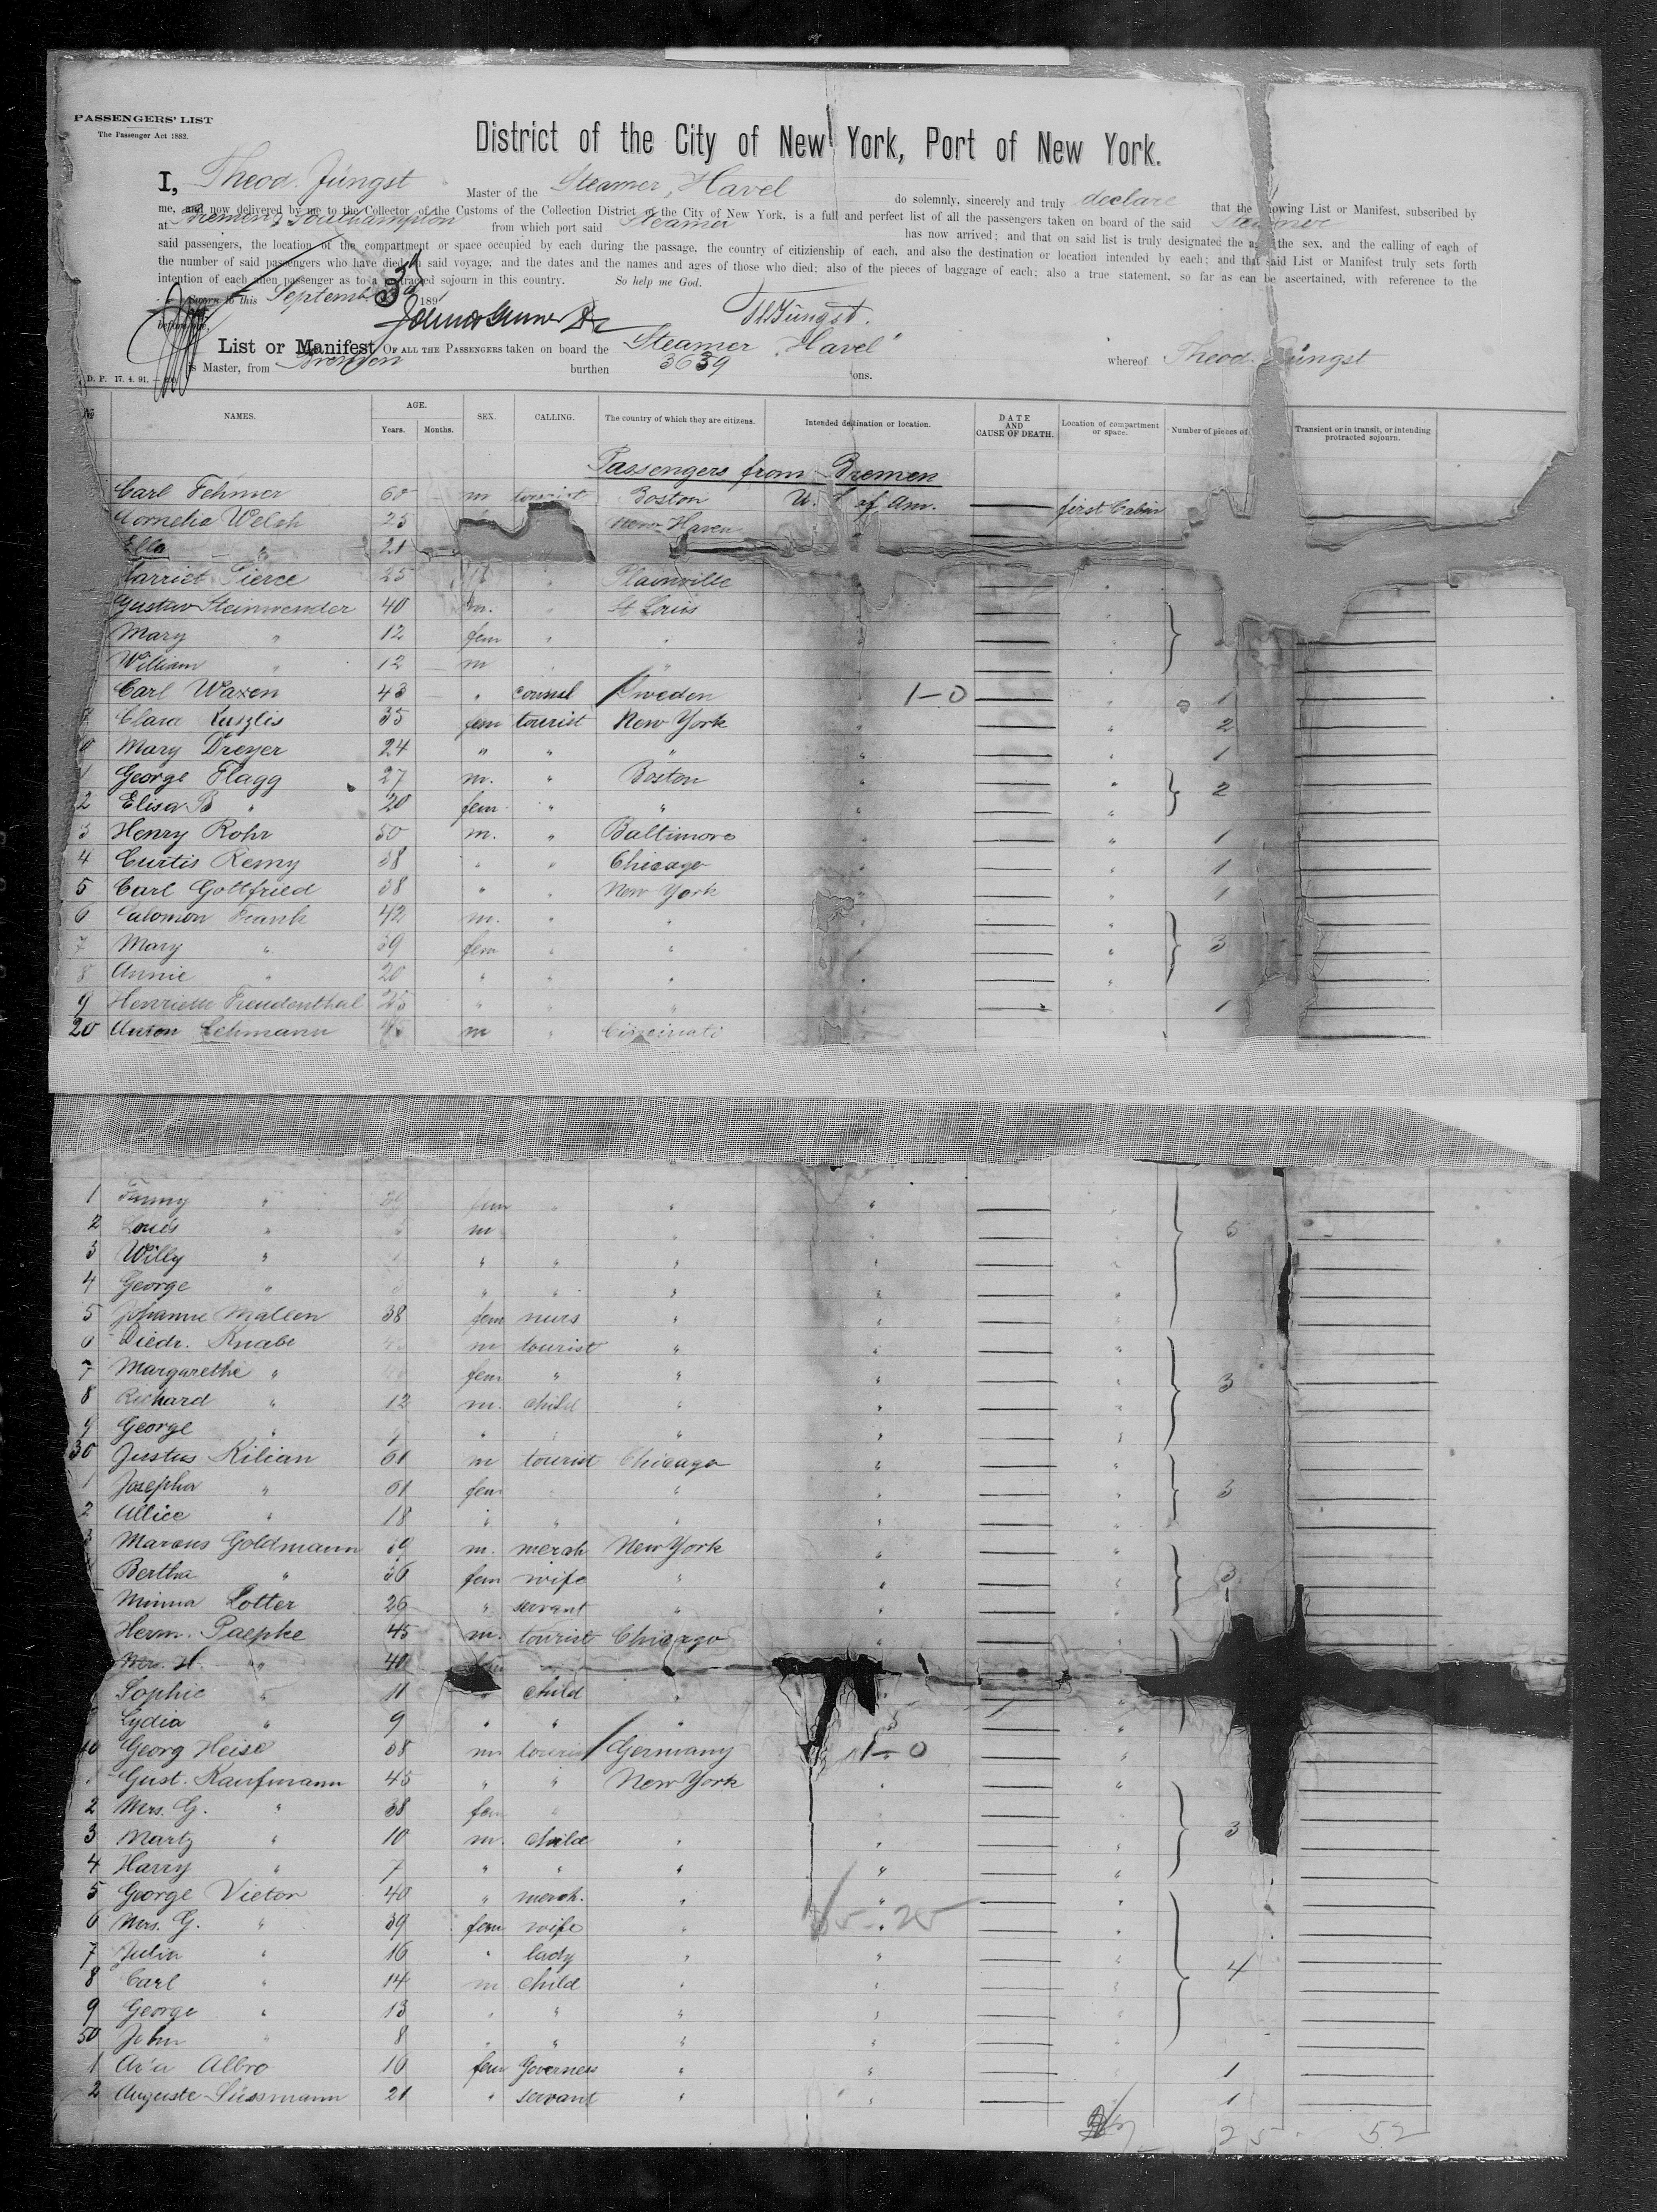 PASSENGERS' LIST
The Passenger Act 1882.
District of the City of New York, Port of New York.
I, Theod. Jüngst Master of the Steamer "Havel" do solemnly, sincerely and truly declare that the following List or Manifest, subscribed by
me, and now delivered by me to the Collector of the Customs of the Collection District of the City of New York, is a full and perfect list of all the passengers taken on board of the said Steamer
at Bremen & Southampton from which port said Steamer has now arrived; and that on said list is truly designated the age, the sex, and the calling of each of
said passengers, the location of the compartment or space occupied by each during the passage, the country of citizienship of each, and also the destination or location intended by each; and that said List or Manifest truly sets forth
the number of said passengers who have died on said voyage, and the dates and the names and ages of those who died; also of the pieces of baggage of each; also a true statement, so far as can be ascertained, with reference to the
intention of each alien passenger as to a protracted sojourn in this country. So help me God.
Sworn to this September 3d 1891
before me, Th Jüngst.
List or Manifest OF ALL THE PASSENGERS taken on board the Steamer "Havel" whereof Theod. Jüngst
is Master, from Bremen burthen 3639 tons.
D. P. 17. 4. 91.
№ NAMES. AGE. Years. Months. SEX. CALLING. The country of which they are citizens. Intended destination or location. DATE AND CAUSE OF DEATH. Location of compartment or space. Number of pieces of Transient or in transit, or intending protracted sojourn.
Passengers from Bremen
Carl Fehmer 60 m tourist Boston U. of Am. first Cabin
Cornelia Welsh 25 New Haven
Ella " 21
Harriet Pierce 25 " Plainville
Gustav Steinwender 40 m. " St Louis
Mary " 12 fem " "
William " 12 m "
Carl Waxen 43 " counsl Sweden 1-0 " 1
Clara Kuszlis 35 fem tourist New York " " 2
0 Mary Dreyer 24 " " " " " 1
1 George Flagg 27 m. " Boston " " 2
2 Elisa B " 20 fem " " " "
3 Henry Rohr 50 m. " Baltimore " " 1
4 Curtis Remy 38 " " Chicago " " 1
5 Carl Gottfried 38 " " New York " " 1
6 Salomon Frank 42 m. " " " " 3
7 Mary " 39 fem " " " "
8 Annie " 20 " " " " "
9 Henriette Freudenthal " " " " " 1
20 Anton Lehmann 45 m " Cincinati
1 Fanny " fem " " " " 5
2 Louis " m " " "
3 Willy " " " " " "
4 George " " " " " "
5 Johanne Mallen 38 fem nurs " " "
6 Diedr. Knabe m tourist " " " 3
7 Margarethe " fem " " " "
8 Richard " 12 m. child " " "
9 George " " " " " "
30 Justus Kilian 61 m tourist Chicago " " 3
1 Josepha " 61 fem " " " "
2 Allice " 18 " " " " "
3 Marcus Goldmann 39 m. merch New York " " 3
Bertha " 36 fem wife " " "
Minna Lotter 26 " servant " " "
Herm. Paepke 45 m. tourist Chicago " "
Mrs. H. " 40 fem
Sophie " 11 " child " " "
Lydia " 9 " " " "
40 Georg Heise 38 m tourist Germany 1-0 "
1 Gust. Kaufmann 45 " " New York " "
2 Mrs. G. " 38 fem " " " 3
3 Martz " 10 m. child " " "
4 Harry " 7 " " " " "
5 George Vietor 40 " merch. " " "
6 Mrs. G. " 39 fem wife " "
7 Julia " 16 " lady " " " 4
8 Carl " 14 m child " " "
9 George " 13 " " " " "
50 John " 8 " " " " "
1 Albro 16 fem Governess " " 1
2 Auguste Süssmann 21 " servant " " 1
25 52